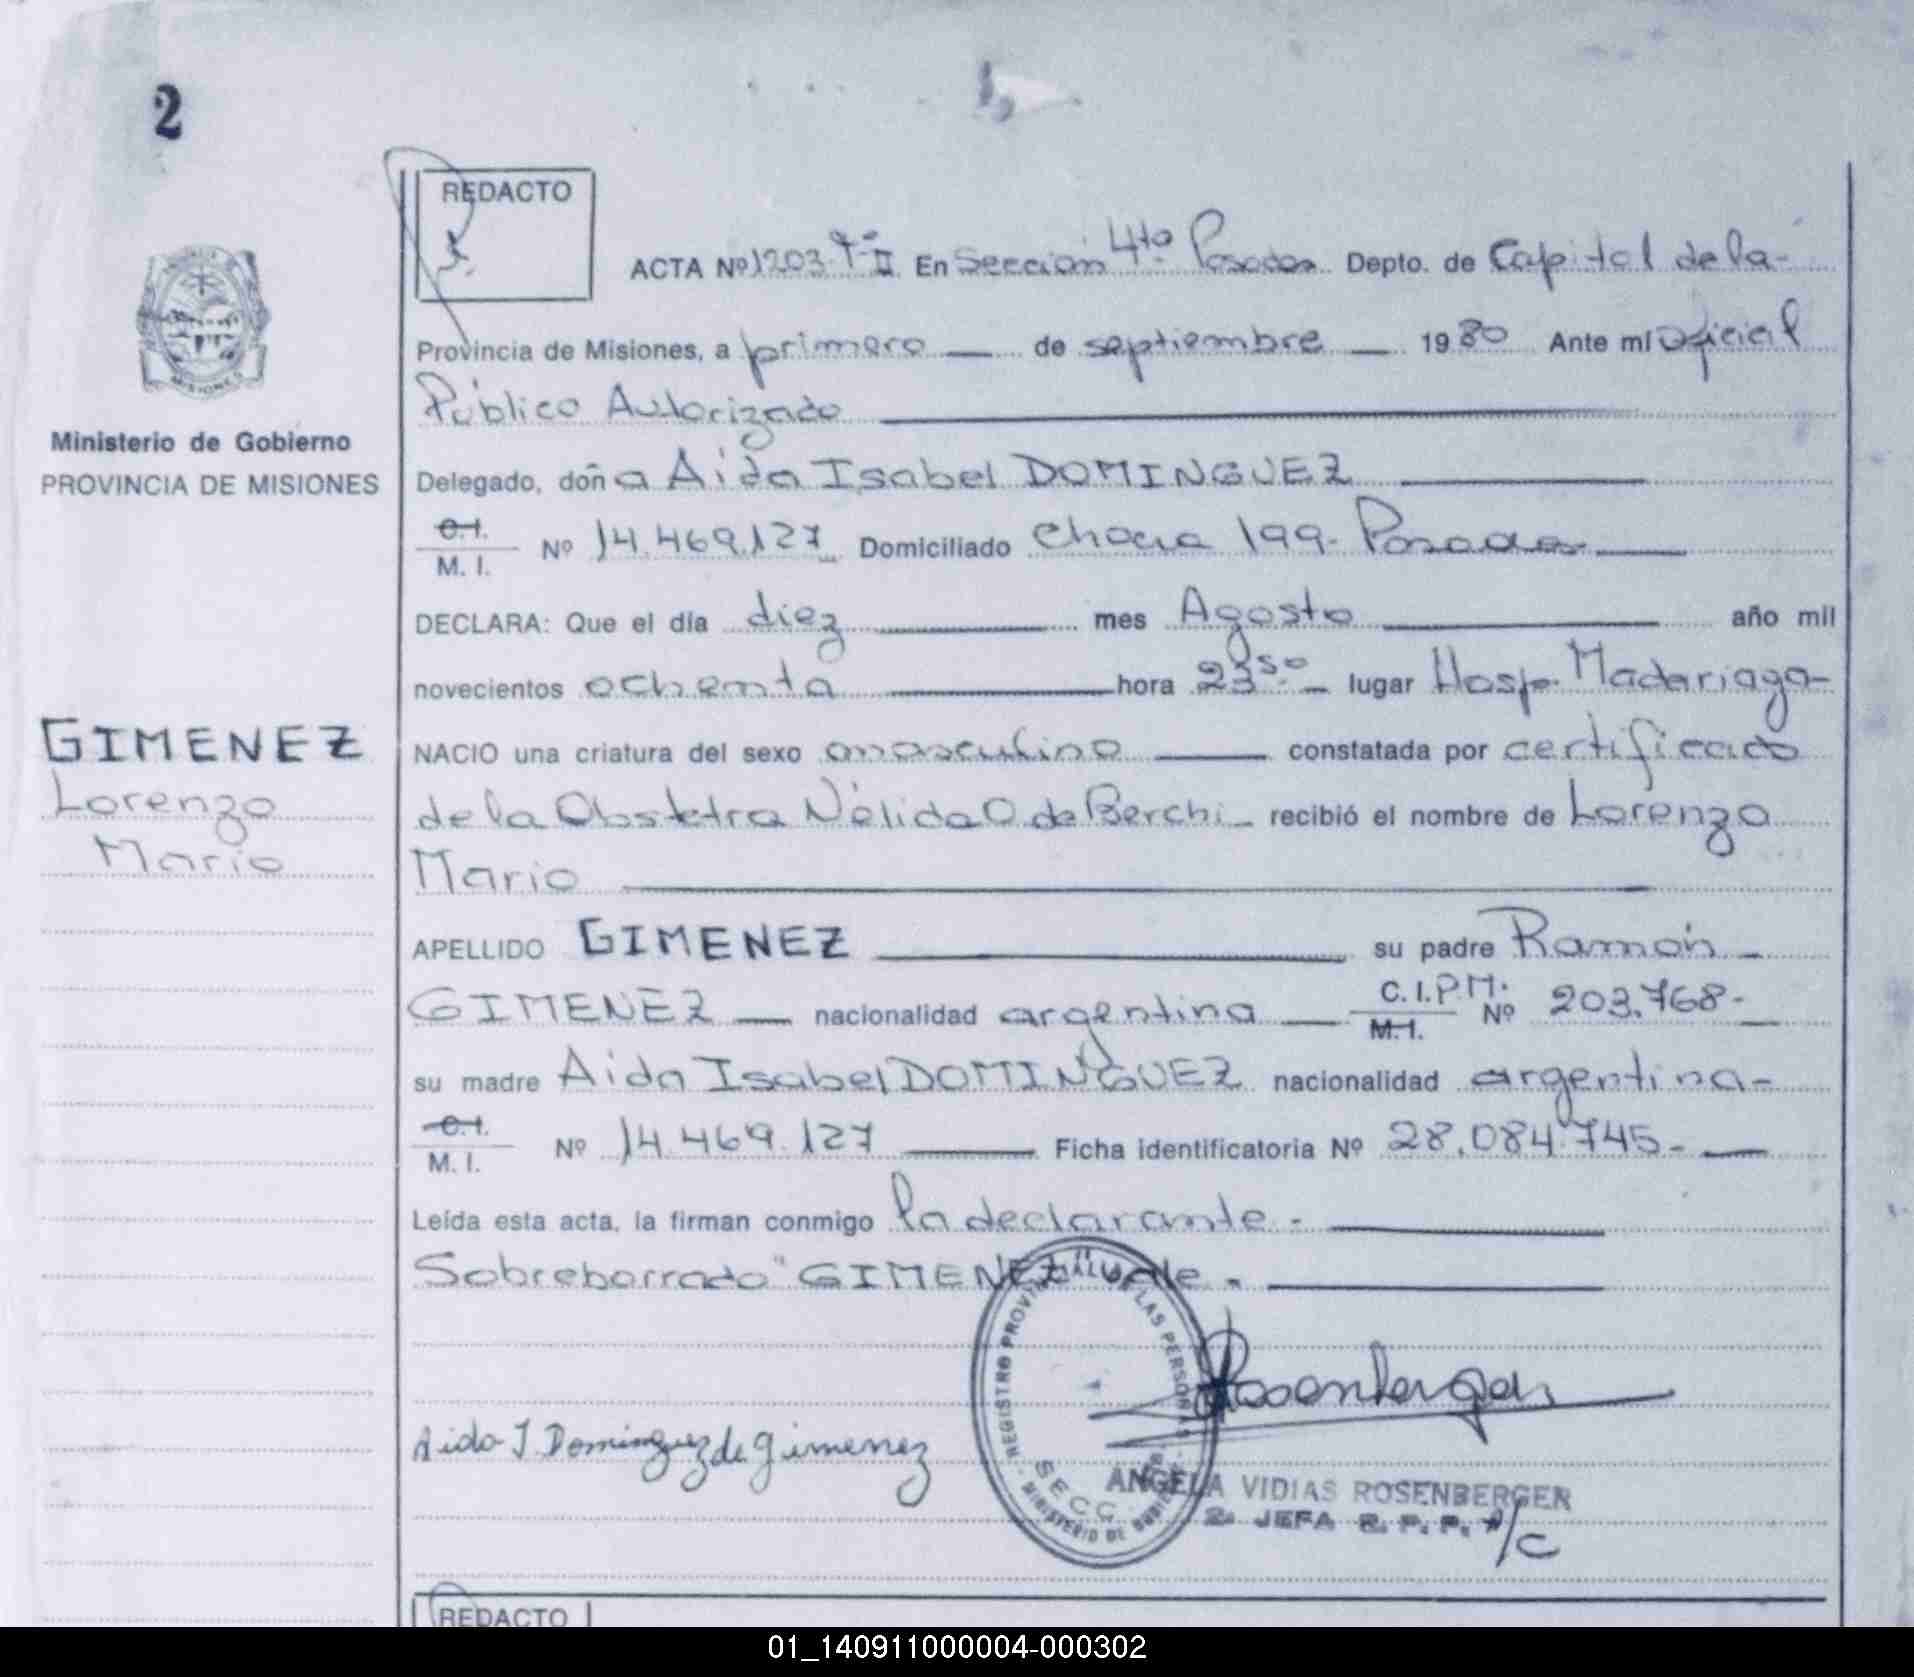 2
REDACTO
ACTA Nº 1203 Tº II En Sección 4ta Posadas Depto. de Capital de la-
Provincia de Misiones, a primero de septiembre 1980 Ante mí Oficial
Público Autorizado
Ministerio de Gobierno
PROVINCIA DE MISIONES
Delegado, doña Aida Isabel DOMINGUEZ
C.I.
M. I. Nº 14.469.127 Domiciliado Chacra 199- Posadas
DECLARA: Que el día diez mes Agosto año mil
novecientos ochenta hora 23⁵⁰ lugar Hosp. Madariaga-
GIMENEZ
Lorenzo
Mario
NACIO una criatura del sexo masculino constatada por certificado
de la Obstetra Nélida O de Berchi- recibió el nombre de Lorenzo
Mario
APELLIDO GIMENEZ su padre Ramón
GIMENEZ nacionalidad argentina C.I.P.M.
M.I. Nº 203.768-
su madre Aida Isabel DOMINGUEZ nacionalidad argentina-
C.I.
M. I. Nº 14.469.127 Ficha identificatoria Nº 28.084.745-
Leída esta acta, la firman conmigo la declarante.-
Sobreborrado "GIMENEZ" Vale.
REGISTRO PROVINCIAL DE LAS PERSONAS
SECC.
MINISTERIO DE GOBIERNO
Rosenberger
Aida I. Dominguez de Gimenez
ANGELA VIDIAS ROSENBERGER
2. JEFA R. P. P. A/C
REDACTO
01_140911000004-000302